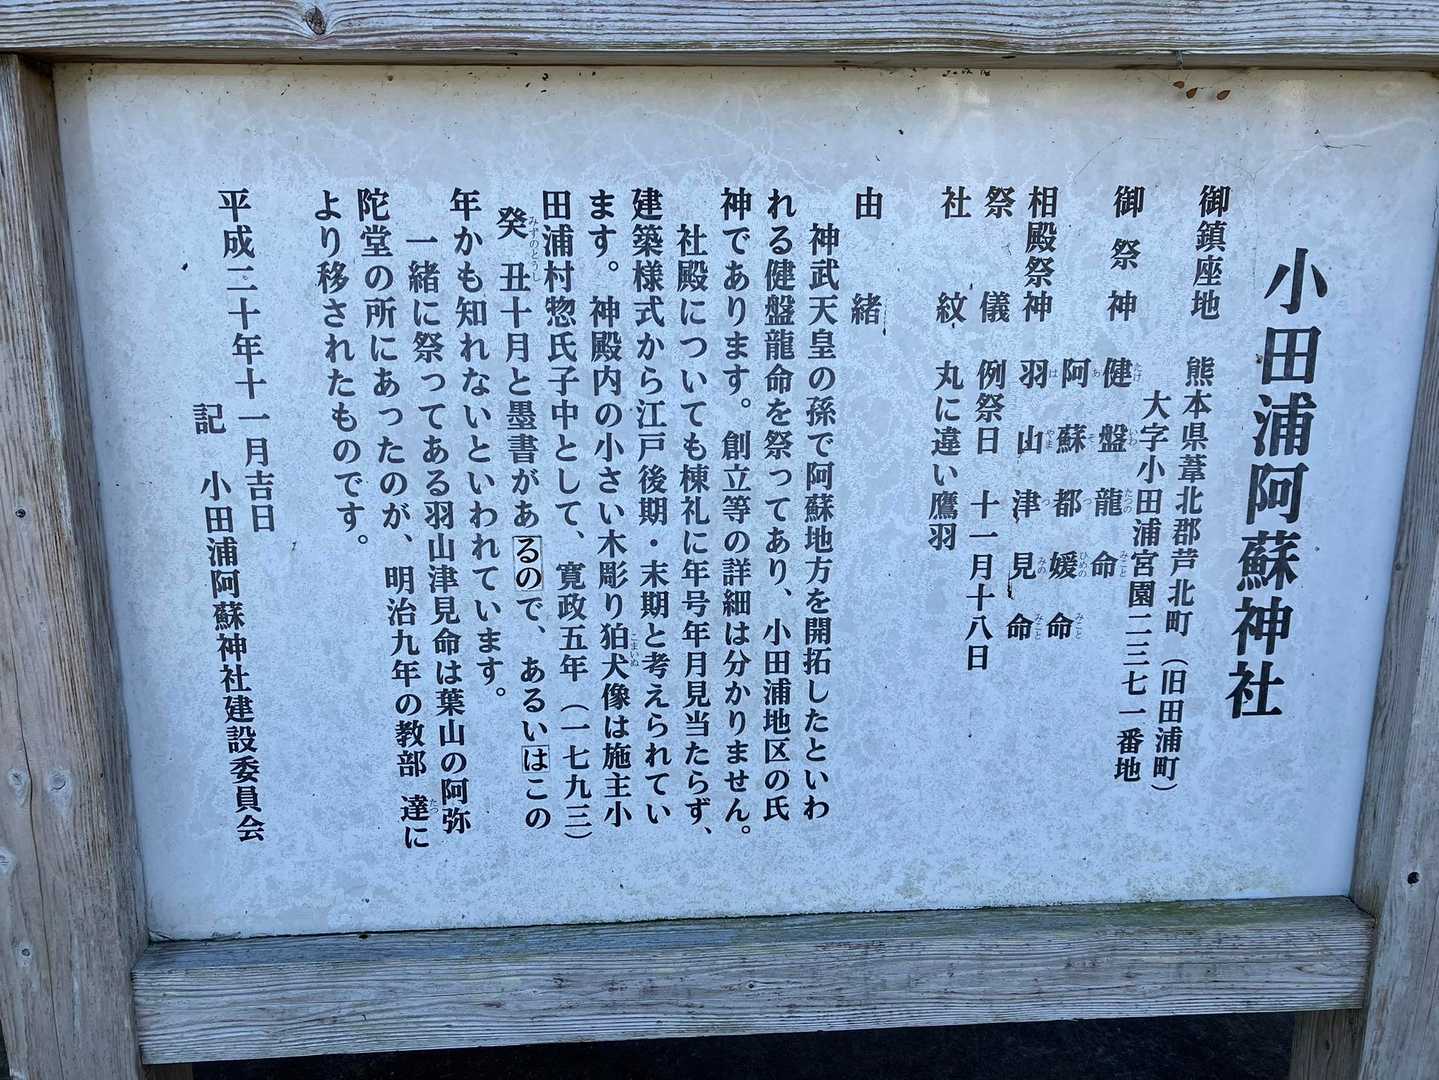 小田浦阿蘇神社
御鎮座地 熊本県葦北郡芦北町(旧田浦町)
大字小田浦宮園二三七一番地
御祭神 健盤龍命
たけ いわ たつの みこと
阿蘇都媛命
あ そ つ ひめの みこと
相殿祭神 羽山津見命
は やま つ みの みこと
祭儀 例祭日 十一月十八日
社紋 丸に違い鷹羽
由緒
神武天皇の孫で阿蘇地方を開拓したといわ
れる健盤龍命を祭ってあり、小田浦地区の氏
神であります。創立等の詳細は分かりません。
社殿についても棟礼に年号年月見当たらず、
建築様式から江戸後期・末期と考えられてい
ます。神殿内の小さい木彫り狛犬像は施主小
こまいぬ
田浦村惣氏子中として、寛政五年(一七九三)
癸丑十月と墨書があるので、あるいはこの
みずのとうし
年かも知れないといわれています。
一緒に祭ってある羽山津見命は葉山の阿弥
陀堂の所にあったのが、明治九年の教部達に
たつ
より移されたものです。
平成二十年十一月吉日
記 小田浦阿蘇神社建設委員会